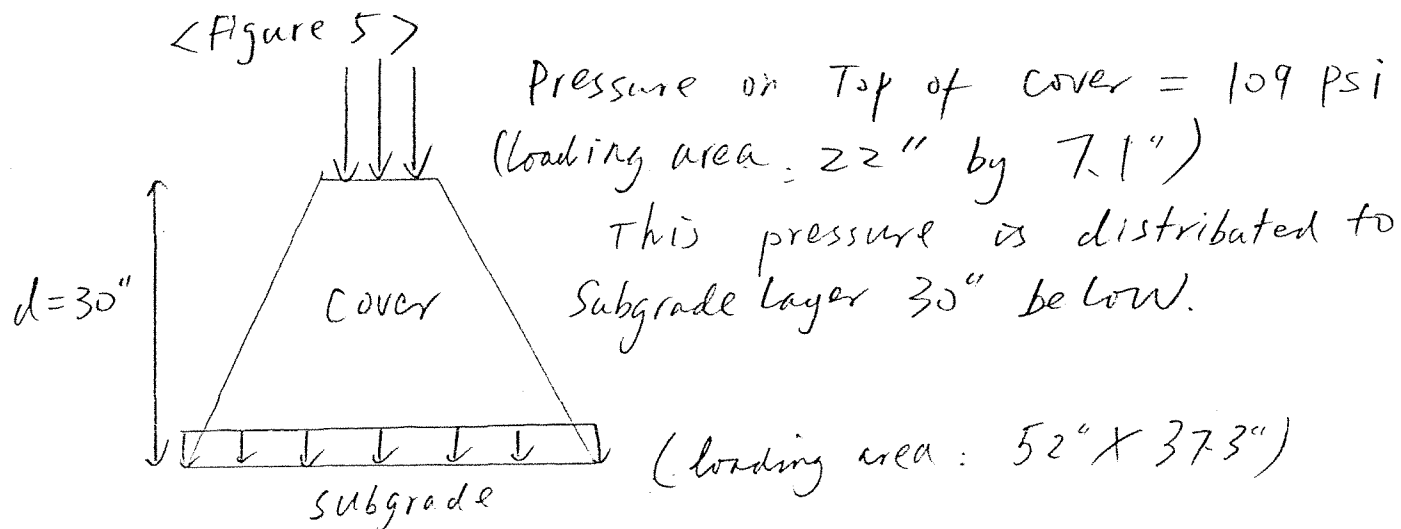 <Figure 5>
Pressure on Top of cover = 109 psi
(loading area: 22" by 7.1")
This pressure is distributed to
Subgrade layer 30" below.
d=30"
Cover
(loading area: 52" X 37.3")
subgrade